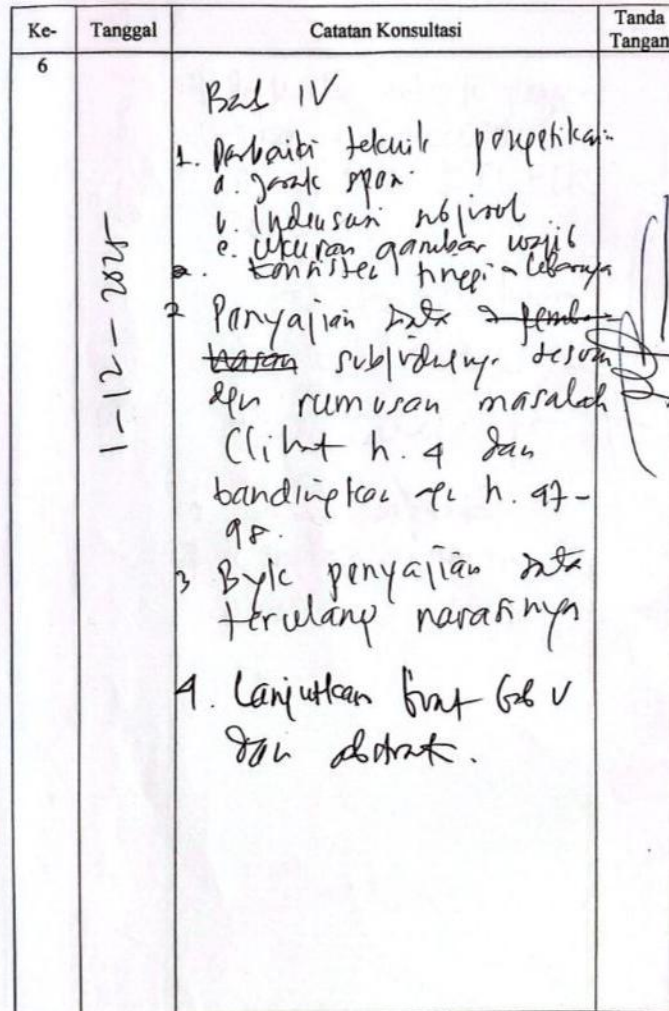 Ke- Tanggal Catatan Konsultasi Tanda Tangan
6
1-12-2025
Bab IV
1. Perbaiki teknik pengetikan:
a. Jarak spasi
b. Indensasi subjudul
c. Ukuran gambar wajib
konsisten tinggi - lebarnya
2 Penyajian data
subjudulnya sesuai
dgn rumusan masalah
(lihat h. 4 dan
bandingkan dgn h. 47-
98.
3 Byk penyajian data
terulang narasinya
4. Lanjutkan buat bab V
dan abstrak.